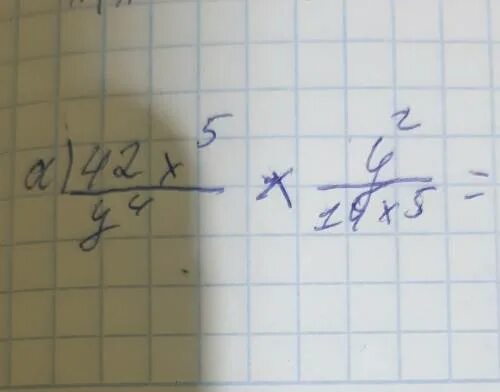 a) 42x⁵/y⁴ × y²/14x⁵ =